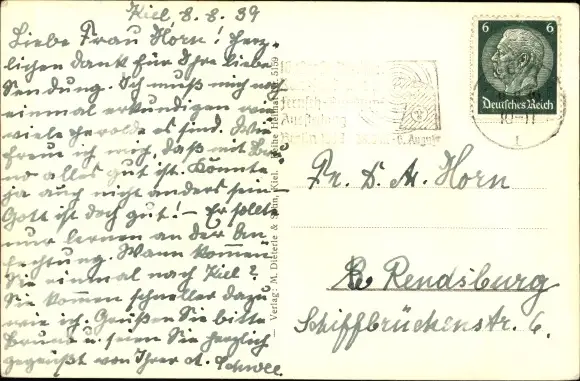 Kiel, 8. 8. 39
Liebe Frau Horn! Herz-
lichen Dank für Ihre liebe
Sendung. Ich muß mich noch
einmal erkundigen wie
viele es sind. Wie
freue ich mich, daß mit
alles gut ist. Könnte
ja auch nicht anders sein –
Gott ist doch gut! – Er sollte
nur lernen an der An-
fechtung. Wann kommen
Sie einmal nach Kiel?
Sie kommen schneller dazu
wie ich. Grüßen Sie bitte
Bruno u. seien Sie herzlich
gegrüßt von Ihrer A.
– Verlag: M. Dieterle & Sohn, Kiel. Reihe Heimat Nr. 5159
Fernseh-
Ausstellung
Berlin August
6 6
Deutsches Reich
10-11
Fr. D. M. Horn
Rendsburg
Schiffbrückenstr. 6.